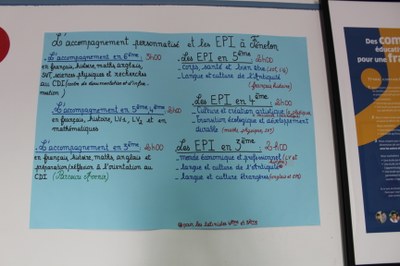 L'accompagnement personnalisé et les EPI à Fénelon
L'accompagnement en 6ème 3h00
en français, histoire, maths, anglais,
SVT, sciences physiques et recherches
au CDI (centre de documentation et d'infor-
mation)
L'accompagnement en 5ème, 4ème 2h00
en français, histoire, LV1, LV2 et en
mathématiques
L'accompagnement en 3ème 2h00
en français, histoire, maths, anglais et
préparation/réflexion à l'orientation au
CDI (Parcours Avenir)
Les EPI en 5ème 2h00
- corps, santé et bien être
- Langue et culture de l'Antiquité
(français, histoire)
Les EPI en 4ème 2h00
- culture et création artistique
- transition écologique et développement
durable (maths, physique, SVT)
Les EPI en 3ème 2h00
- monde économique et professionnel
- langue et culture de l'Antiquité
- langue et culture étrangères
Des com
éduca
pour une fra